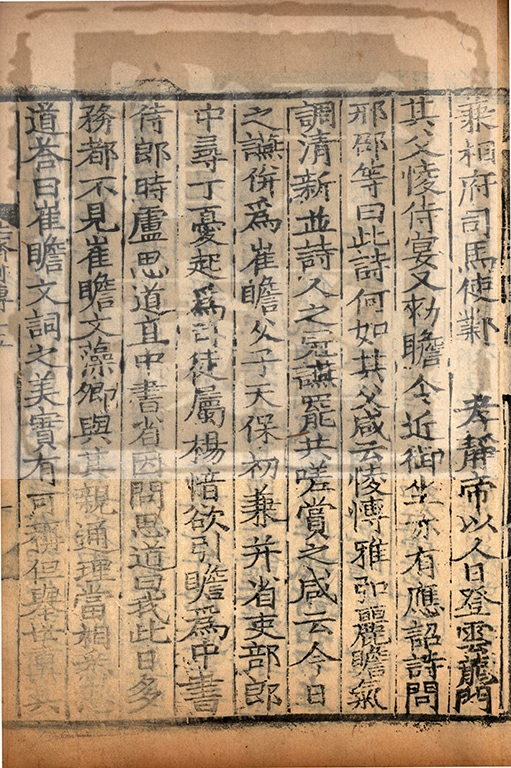 兼相府司馬使鄴　孝靜帝以人日登雲龍門
其父㥄侍宴又勑瞻令近御坐亦有應詔詩問
邢邵等曰此詩何如其父咸云㥄愽雅弘麗瞻氣
調清新並詩人之冠讌罷共嗟賞之咸云今日
之讌併爲崔瞻父子天保初兼并省吏部郎
中尋丁憂起爲司徒屬楊愔欲引瞻爲中書
侍郎時盧思道直中書省因問思道曰我此日多
務都不見崔瞻文藻卿與其親通理當相
道荅曰崔瞻文詞之美實有可稱但舉世重其